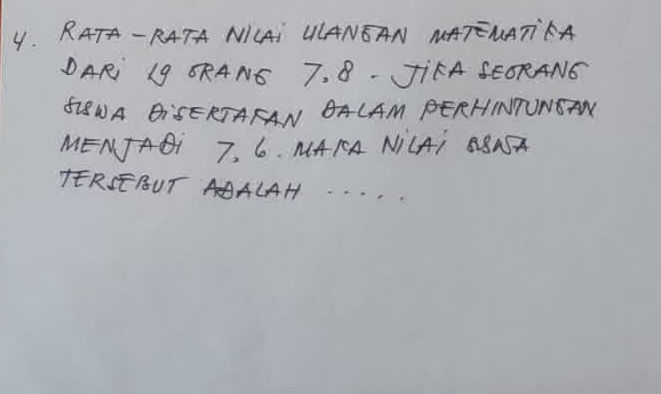 4. RATA-RATA NILAI ULANGAN MATEMATIKA
DARI 19 ORANG 7,8. JIKA SEORANG
SISWA DISERTAKAN DALAM PERHINTUNGAN
MENJADI 7,6. MAKA NILAI SISWA
TERSEBUT ADALAH .....